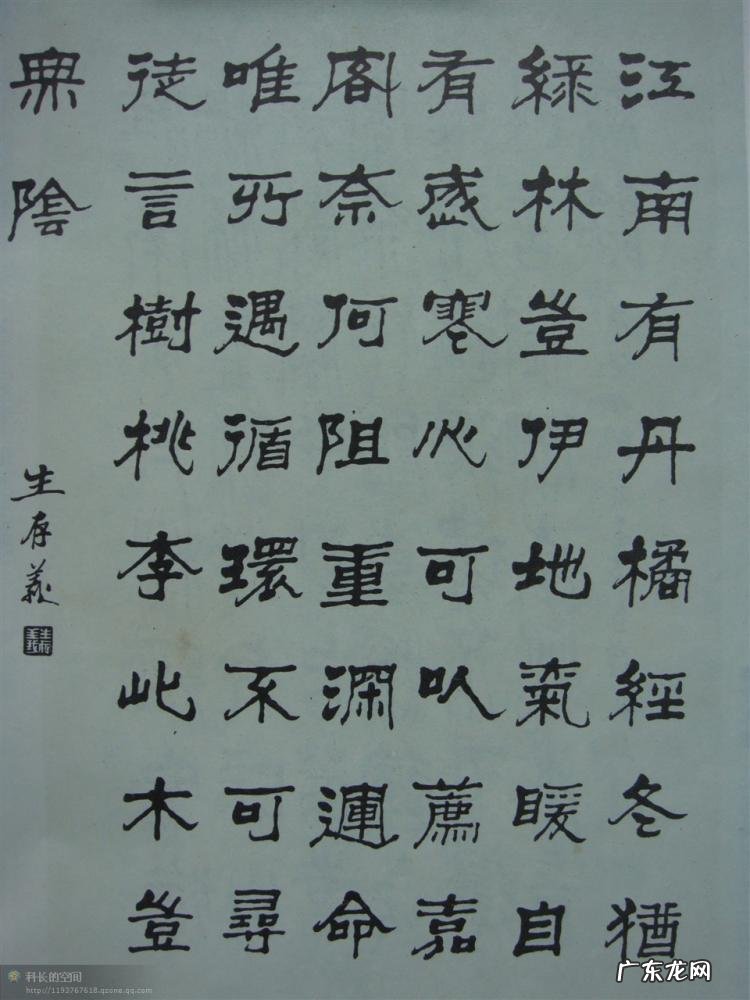 江南有丹橘經冬猶
綠林豈伊地氣暖自
有歲寒心可以薦嘉
客奈何阻重深運命
唯所遇循環不可尋
徒言樹桃李此木豈
無陰
生存義
科长的空间
http://1193767618.qzone.qq.com
广东龙网